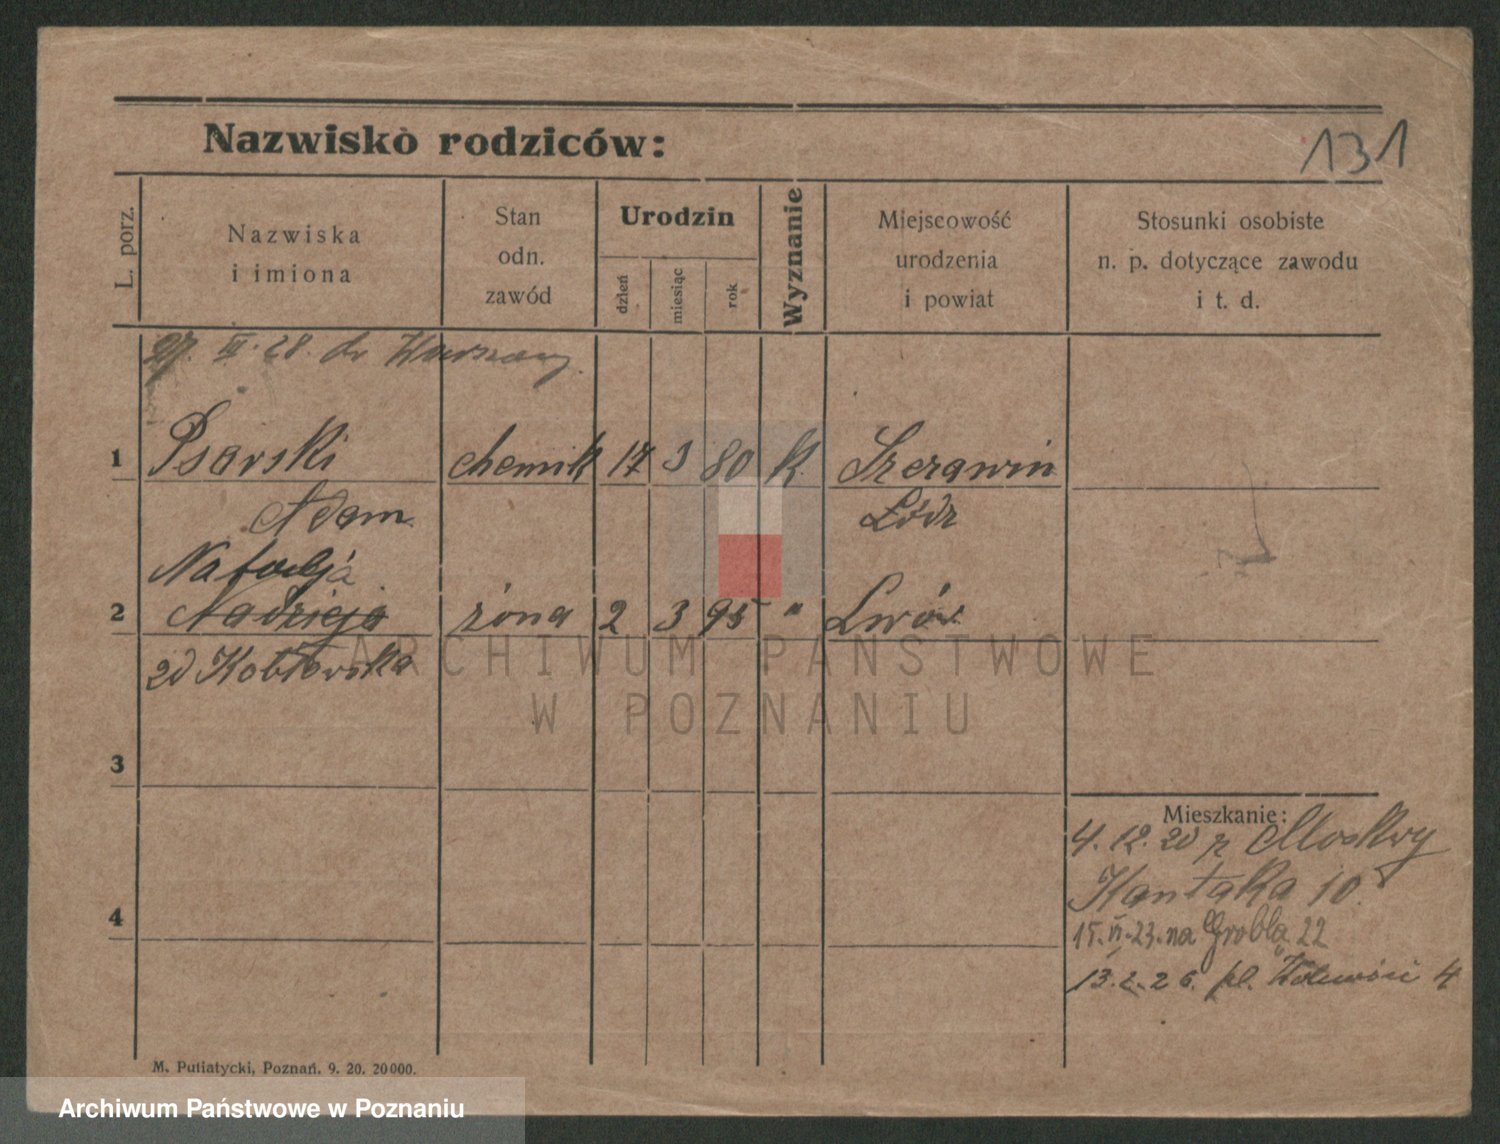 Nazwisko rodziców:
131
L. porz.
Nazwiska
i imiona
Stan
odn.
zawód
Urodzin
dzień
miesiąc
rok
Wyznanie
Miejscowość
urodzenia
i powiat
Stosunki osobiste
n. p. dotyczące zawodu
i t. d.
27. III. 28. do Warszawy
1 Psarski chemik 17 3 80 k. Szczawin
Adam Łódz
Natalja
2 Nadzieja żona 2 3 95 " Lwów
zd Kobłowska
3
4
Mieszkanie:
4. 12. 20 z Moskwy
Kantaka 10.
15. VI. 23. na Groblą 22
13. 2. 26. pl. Wolności 4
M. Putiatycki, Poznań. 9. 20. 20000.
ARCHIWUM PAŃSTWOWE
W POZNANIU
Archiwum Państwowe w Poznaniu